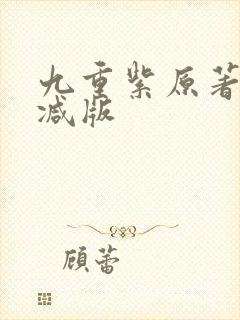 九重紫原著
减版
顾蕾